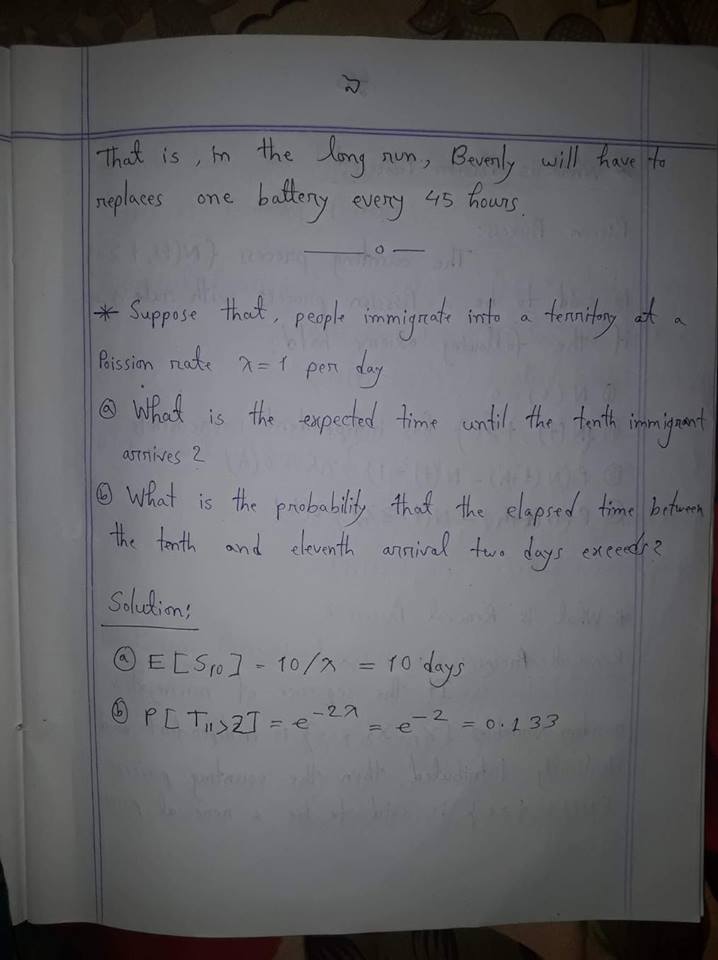 ২
That is, in the long run, Beverly will have to
replaces one battery every 45 hours.
* Suppose that, people immigrate into a territory at a
Poission rate λ = 1 per day
ⓐ What is the expected time until the tenth immigrant
arrives?
ⓑ What is the probability that the elapsed time between
the tenth and eleventh arrival two days exceeds?
Solution:
ⓐ E[S₁₀] - 10/λ = 10 days
ⓑ P[T₁₁>2] = e^-2λ = e^-2 = 0.133